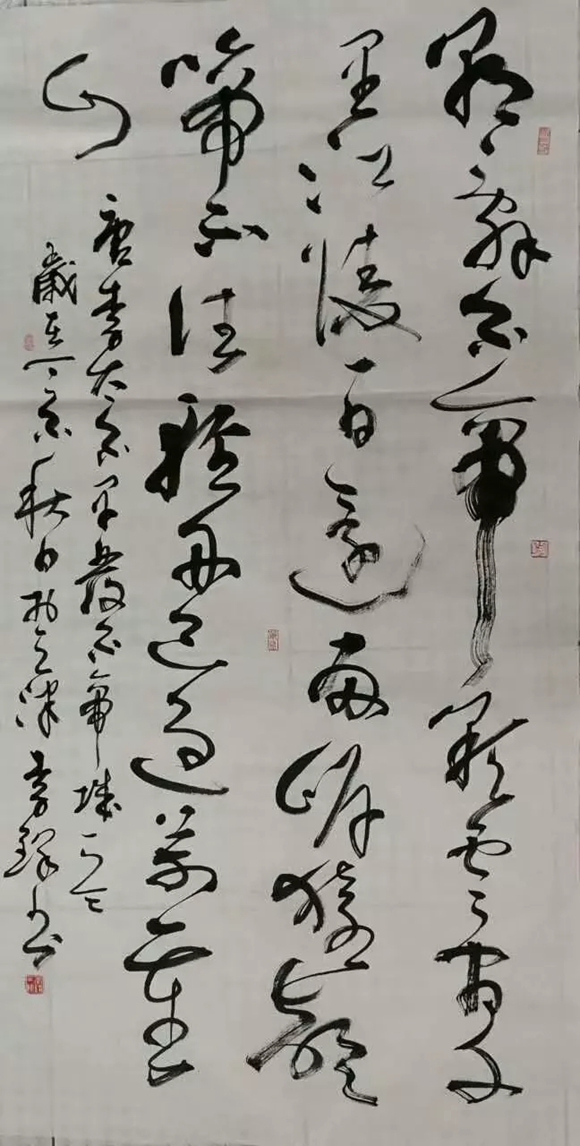 朝辭白帝彩雲間千
里江陵一日還兩岸猿聲
啼不住輕舟已過萬重
山
唐李太白早發白帝城
歲在丁秋日於天津李書